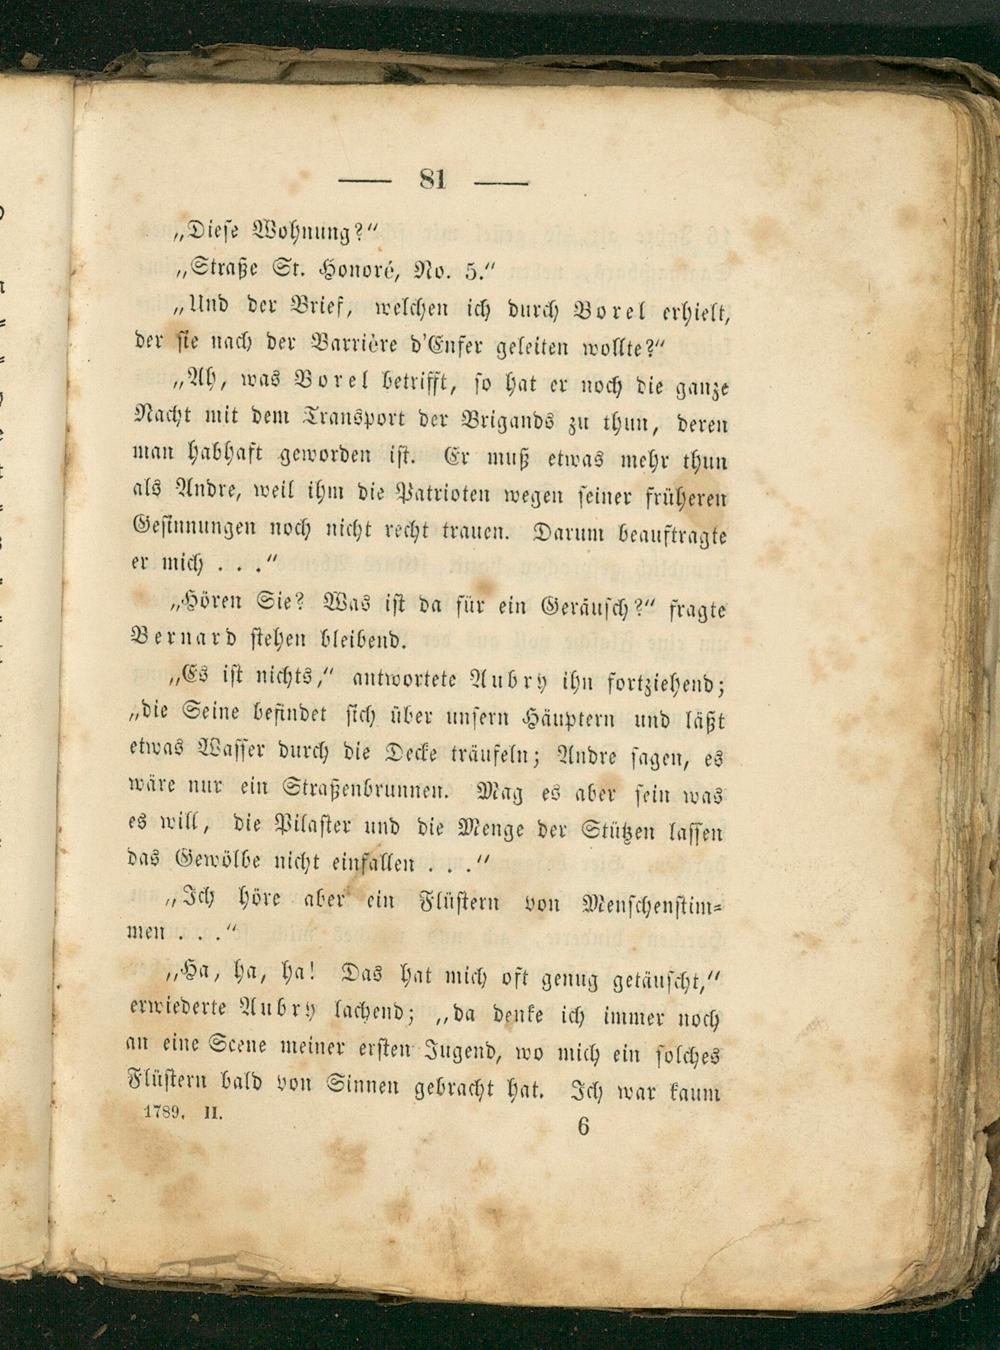 — 81 —
„Diese Wohnung?“
„Straße St. Honoré, No. 5.“
„Und der Brief, welchen ich durch Borel erhielt,
der sie nach der Barrière d'Enfer geleiten wollte?“
„Ah, was Borel betrifft, so hat er noch die ganze
Nacht mit dem Transport der Brigands zu thun, deren
man habhaft geworden ist. Er muß etwas mehr thun
als Andre, weil ihm die Patrioten wegen seiner früheren
Gesinnungen noch nicht recht trauen. Darum beauftragte
er mich . . .“
„Hören Sie? Was ist da für ein Geräusch?“ fragte
Bernard stehen bleibend.
„Es ist nichts,“ antwortete Aubry ihn fortziehend;
„die Seine befindet sich über unsern Häuptern und läßt
etwas Wasser durch die Decke träufeln; Andre sagen, es
wäre nur ein Straßenbrunnen. Mag es aber sein was
es will, die Pilaster und die Menge der Stützen lassen
das Gewölbe nicht einfallen . . .“
„Ich höre aber ein Flüstern von Menschenstim-
men . . .“
„Ha, ha, ha! Das hat mich oft genug getäuscht,“
erwiederte Aubry lachend; „da denke ich immer noch
an eine Scene meiner ersten Jugend, wo mich ein solches
Flüstern bald von Sinnen gebracht hat. Ich war kaum
1789. II.
6